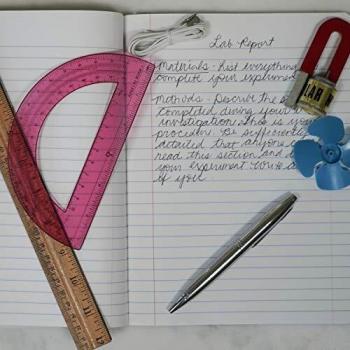 Lab Report
Materials - List everything
complete your experiment
Methods - Describe the
completed during your
investigation. This is your
procedure. Be sufficiently
detailed that anyone
read this section and
your experiment. Write as
of you
LAB